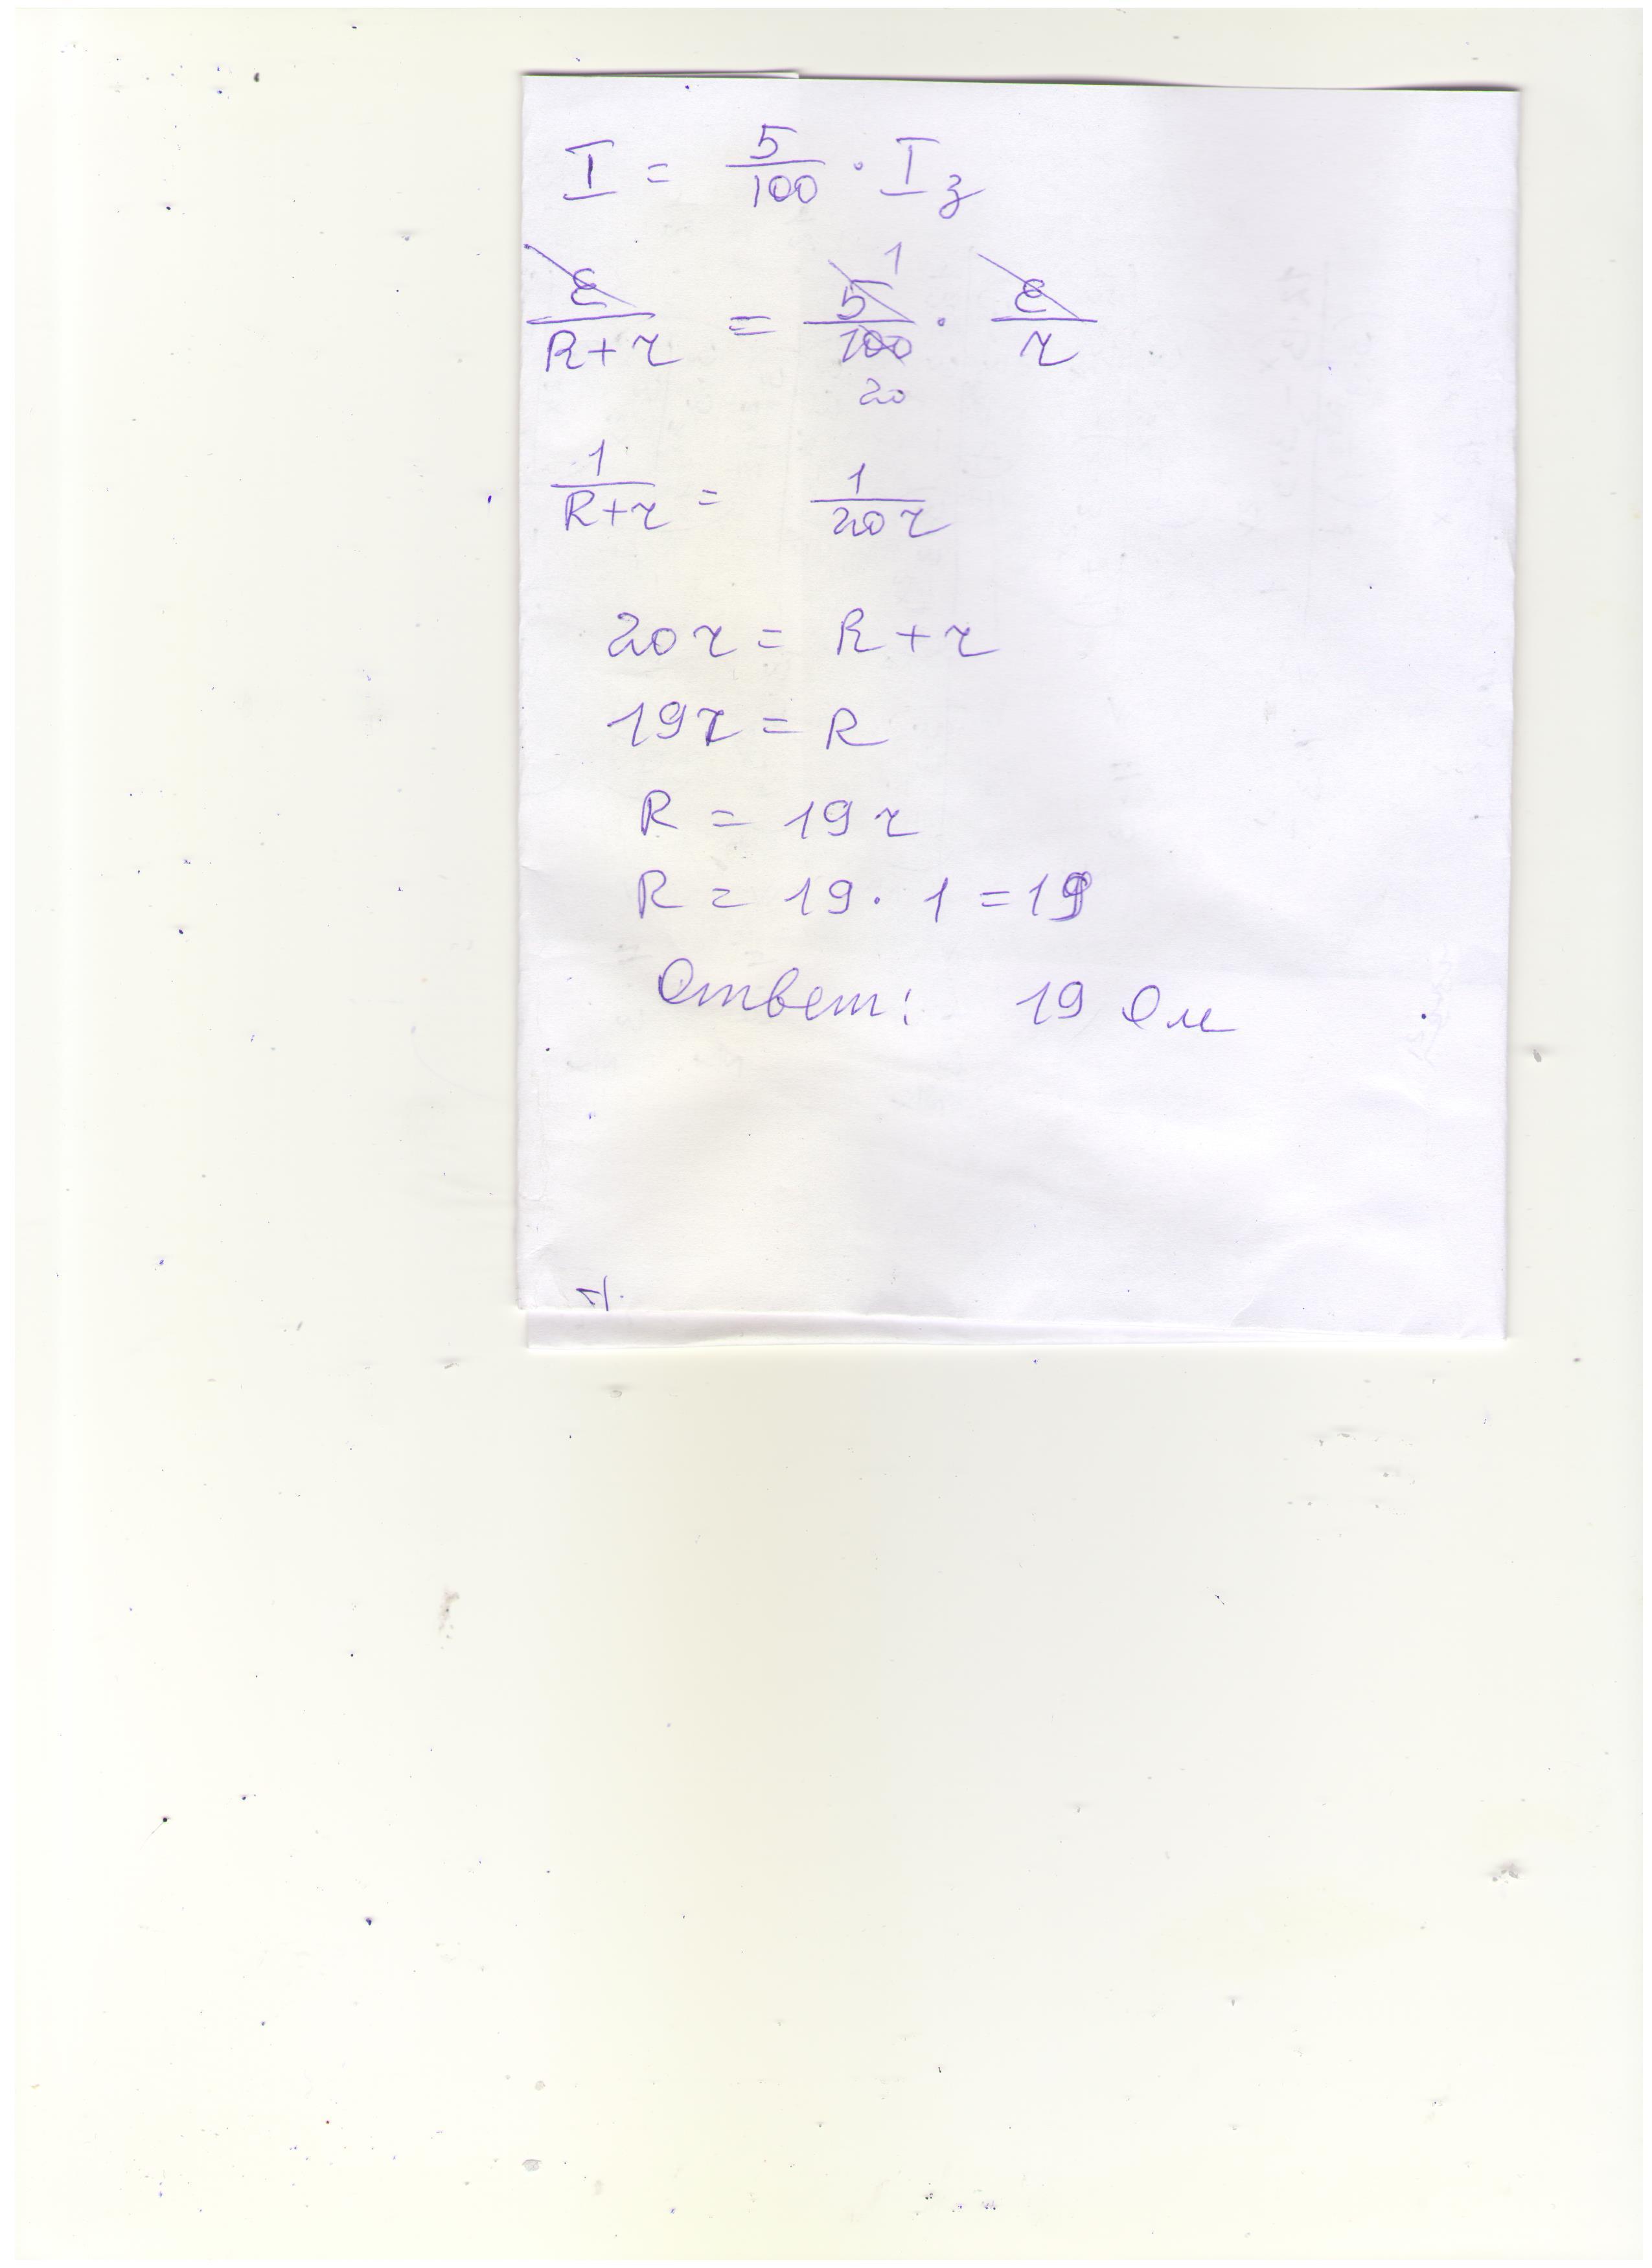 I = 5/100 · Iз
ε/(R+r) = 5/100 · ε/r
1
20
1/(R+r) = 1/(20r)
20r = R+r
19r = R
R = 19r
R = 19 · 1 = 19
Ответ: 19 Ом